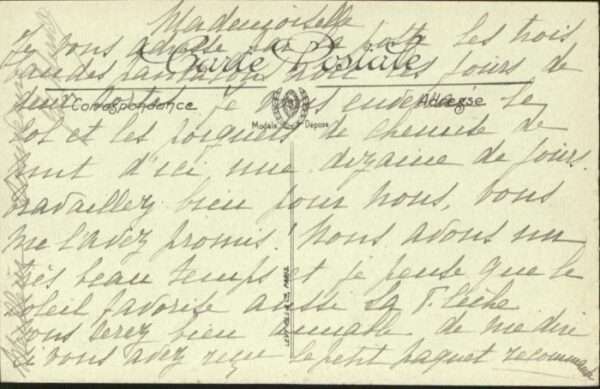 Mademoiselle
Je vous adresse par la poste les trois
bandes pantalons avec les jours de
Carte Postale
Correspondance
Adresse
je vous enverrai le
Modèle Déposé
col et les poignets de chemise de
nuit d'ici une dizaine de jours.
travaillez bien pour nous, vous
me l'avez promis! Nous avons un
très beau temps et je pense que le
soleil favorise aussi La Flèche
vous serez bien aimable de me dire
si vous avez reçu le petit paquet recommandé
LEVY FILS & Cie, PARIS